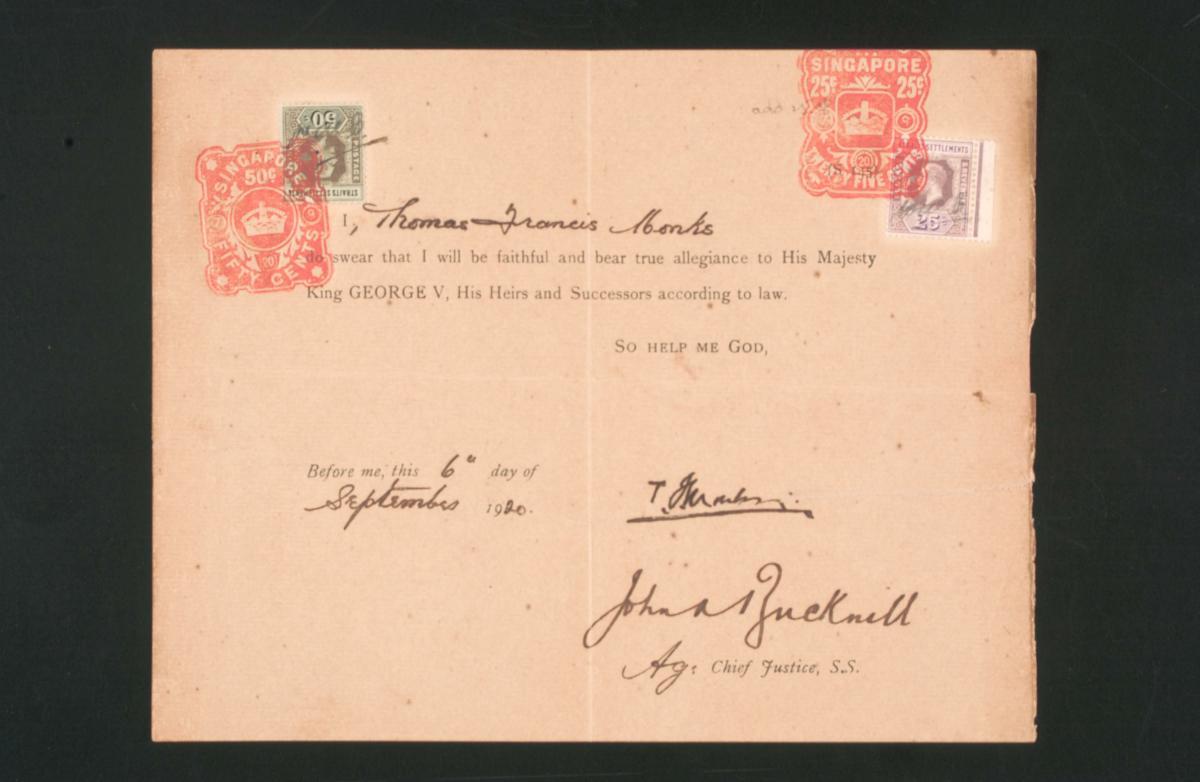 SINGAPORE
25¢ 25¢
20
TWENTY FIVE CENTS
SETTLEMENTS
25
50
POSTAGE
STRAITS SETTLEMENTS
SINGAPORE
50¢
20
FIFTY CENTS
I, Thomas Francis Monks
do swear that I will be faithful and bear true allegiance to His Majesty
King GEORGE V, His Heirs and Successors according to law.
SO HELP ME GOD,
Before me, this 6th day of
September 1920.
T. F. Monks
John A Bucknill
Ag: Chief Justice, S.S.